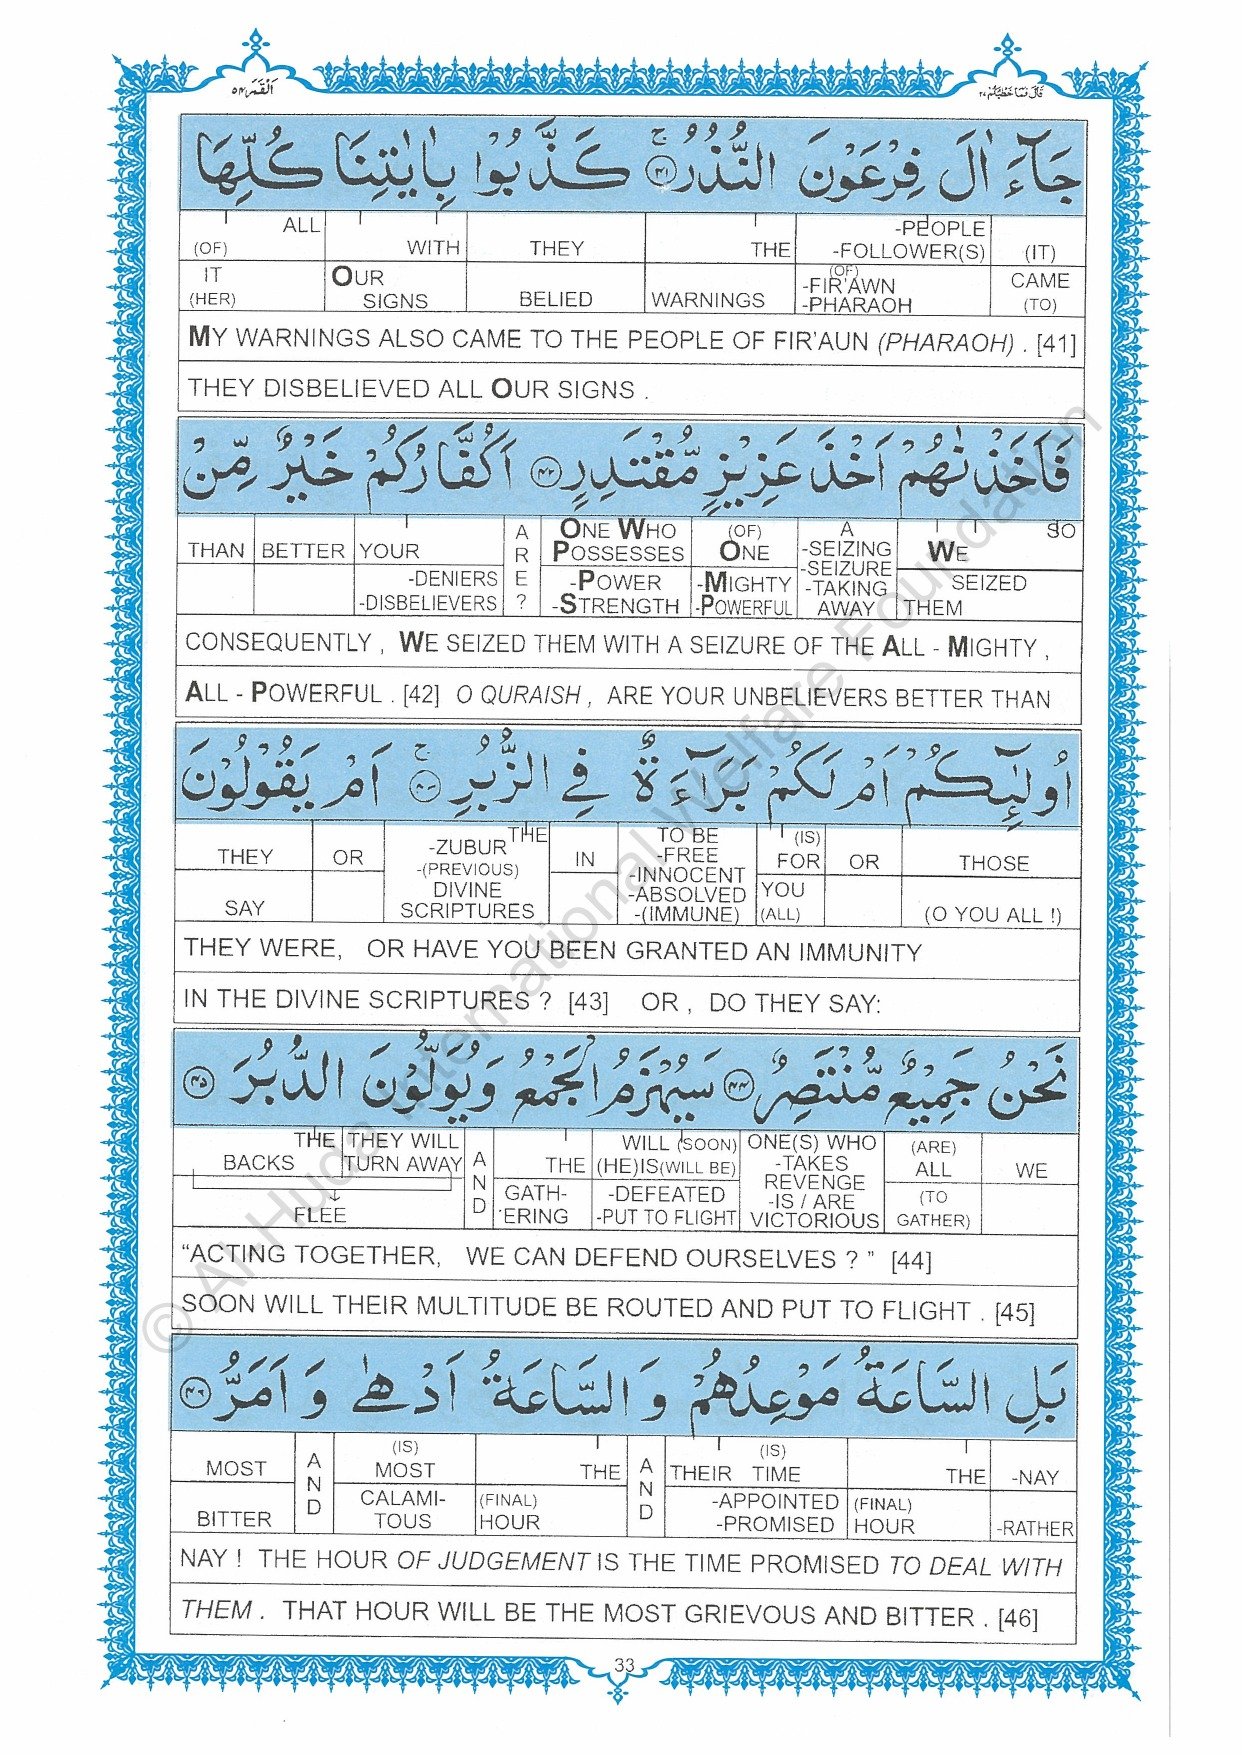 اَلْقَمَر ٥٤
قَالَ فَمَا خَطْبُكُمْ ٢٧
جَآءَ اٰلَ فِرْعَوْنَ النُّذُرُ ۚ ﴿٤١﴾ كَذَّبُوْا بِاٰيٰتِنَا كُلِّهَا
ALL WITH THEY THE -PEOPLE -FOLLOWER(S) (IT)
(OF) IT (HER) OUR SIGNS BELIED WARNINGS (OF) -FIR'AWN -PHARAOH CAME (TO)
MY WARNINGS ALSO CAME TO THE PEOPLE OF FIR'AUN (PHARAOH) . [41]
THEY DISBELIEVED ALL OUR SIGNS .
فَاَخَذْنٰهُمْ اَخْذَ عَزِيْزٍ مُّقْتَدِرٍ ﴿٤٢﴾ اَكُفَّارُكُمْ خَيْرٌ مِّنْ
THAN BETTER YOUR ARE? ONE WHO POSSESSES (OF) ONE A -SEIZING -SEIZURE -TAKING AWAY SO WE
-DENIERS -DISBELIEVERS -POWER -STRENGTH -MIGHTY -POWERFUL SEIZED THEM
CONSEQUENTLY , WE SEIZED THEM WITH A SEIZURE OF THE ALL - MIGHTY ,
ALL - POWERFUL . [42] O QURAISH , ARE YOUR UNBELIEVERS BETTER THAN
اُولٰٓئِكُمْ اَمْ لَكُمْ بَرَآءَةٌ فِي الزُّبُرِ ۚ ﴿٤٣﴾ اَمْ يَقُوْلُوْنَ
THEY OR THE -ZUBUR -(PREVIOUS) DIVINE SCRIPTURES IN TO BE -FREE -INNOCENT -ABSOLVED -(IMMUNE) (IS) FOR OR THOSE
SAY YOU (ALL) (O YOU ALL !)
THEY WERE, OR HAVE YOU BEEN GRANTED AN IMMUNITY
IN THE DIVINE SCRIPTURES ? [43] OR , DO THEY SAY:
نَحْنُ جَمِيْعٌ مُّنْتَصِرٌ ﴿٤٤﴾ سَيُهْزَمُ الْجَمْعُ وَيُوَلُّوْنَ الدُّبُرَ ﴿٤٥﴾
THE BACKS THEY WILL TURN AWAY AND THE WILL (SOON) (HE)IS(WILL BE) ONE(S) WHO -TAKES REVENGE -IS / ARE VICTORIOUS (ARE) ALL WE
FLEE GATH-ERING -DEFEATED -PUT TO FLIGHT (TO GATHER)
“ACTING TOGETHER, WE CAN DEFEND OURSELVES ? ” [44]
SOON WILL THEIR MULTITUDE BE ROUTED AND PUT TO FLIGHT . [45]
بَلِ السَّاعَةُ مَوْعِدُهُمْ وَ السَّاعَةُ اَدْهٰى وَ اَمَرُّ ﴿٤٦﴾
MOST AND (IS) MOST THE AND THEIR (IS) TIME THE -NAY
BITTER CALAMI-TOUS (FINAL) HOUR -APPOINTED -PROMISED (FINAL) HOUR -RATHER
NAY ! THE HOUR OF JUDGEMENT IS THE TIME PROMISED TO DEAL WITH
THEM . THAT HOUR WILL BE THE MOST GRIEVOUS AND BITTER . [46]
33
© Al Huda International Welfare Foundation